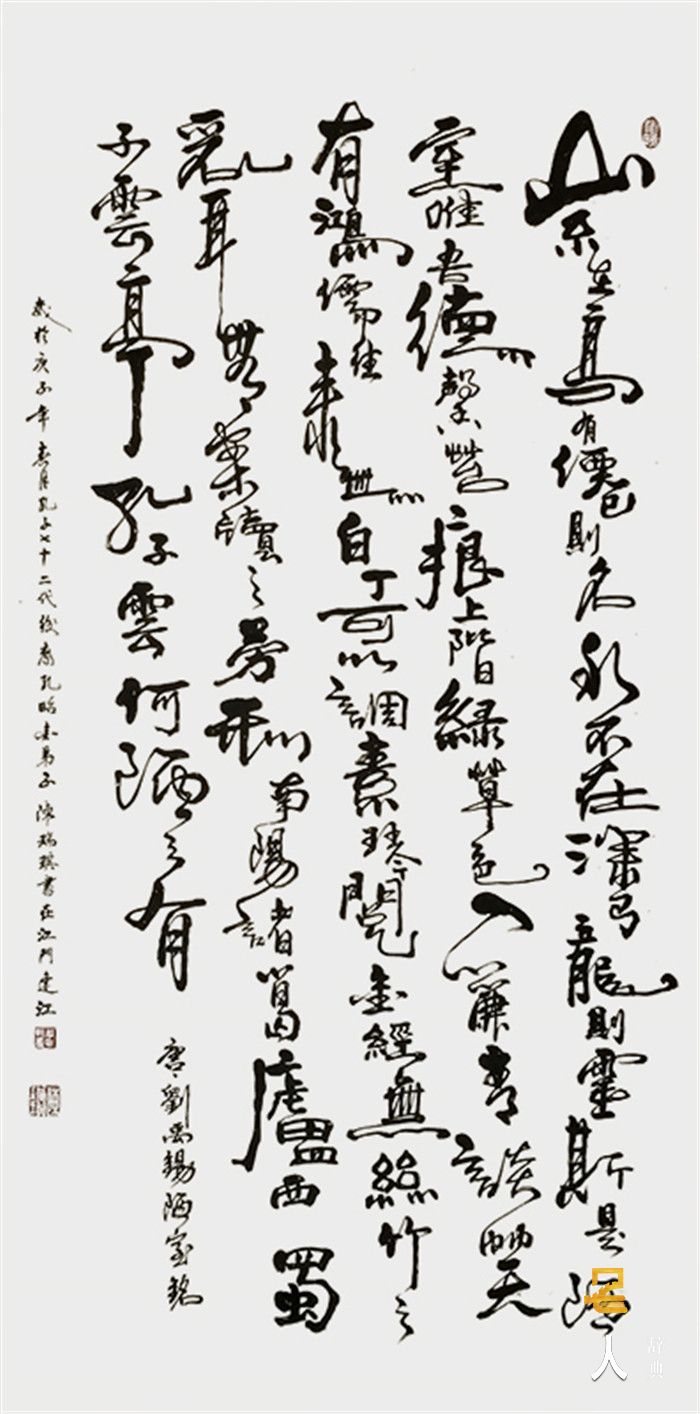 山不在高有僊則名水不在深有龍則靈斯是陋
室唯吾德馨苔痕上階緑草色入簾青談笑
有鴻儒往來無白丁可以調素琴閱金經無絲竹之
亂耳無案牘之勞形南陽諸葛廬西蜀
子雲亭孔子雲何陋之有
唐劉禹錫陋室銘
歲於庚子年春月孔子七十二代後裔孔昭弟子陳瑞琪書在江門蓬江
名人
辞典